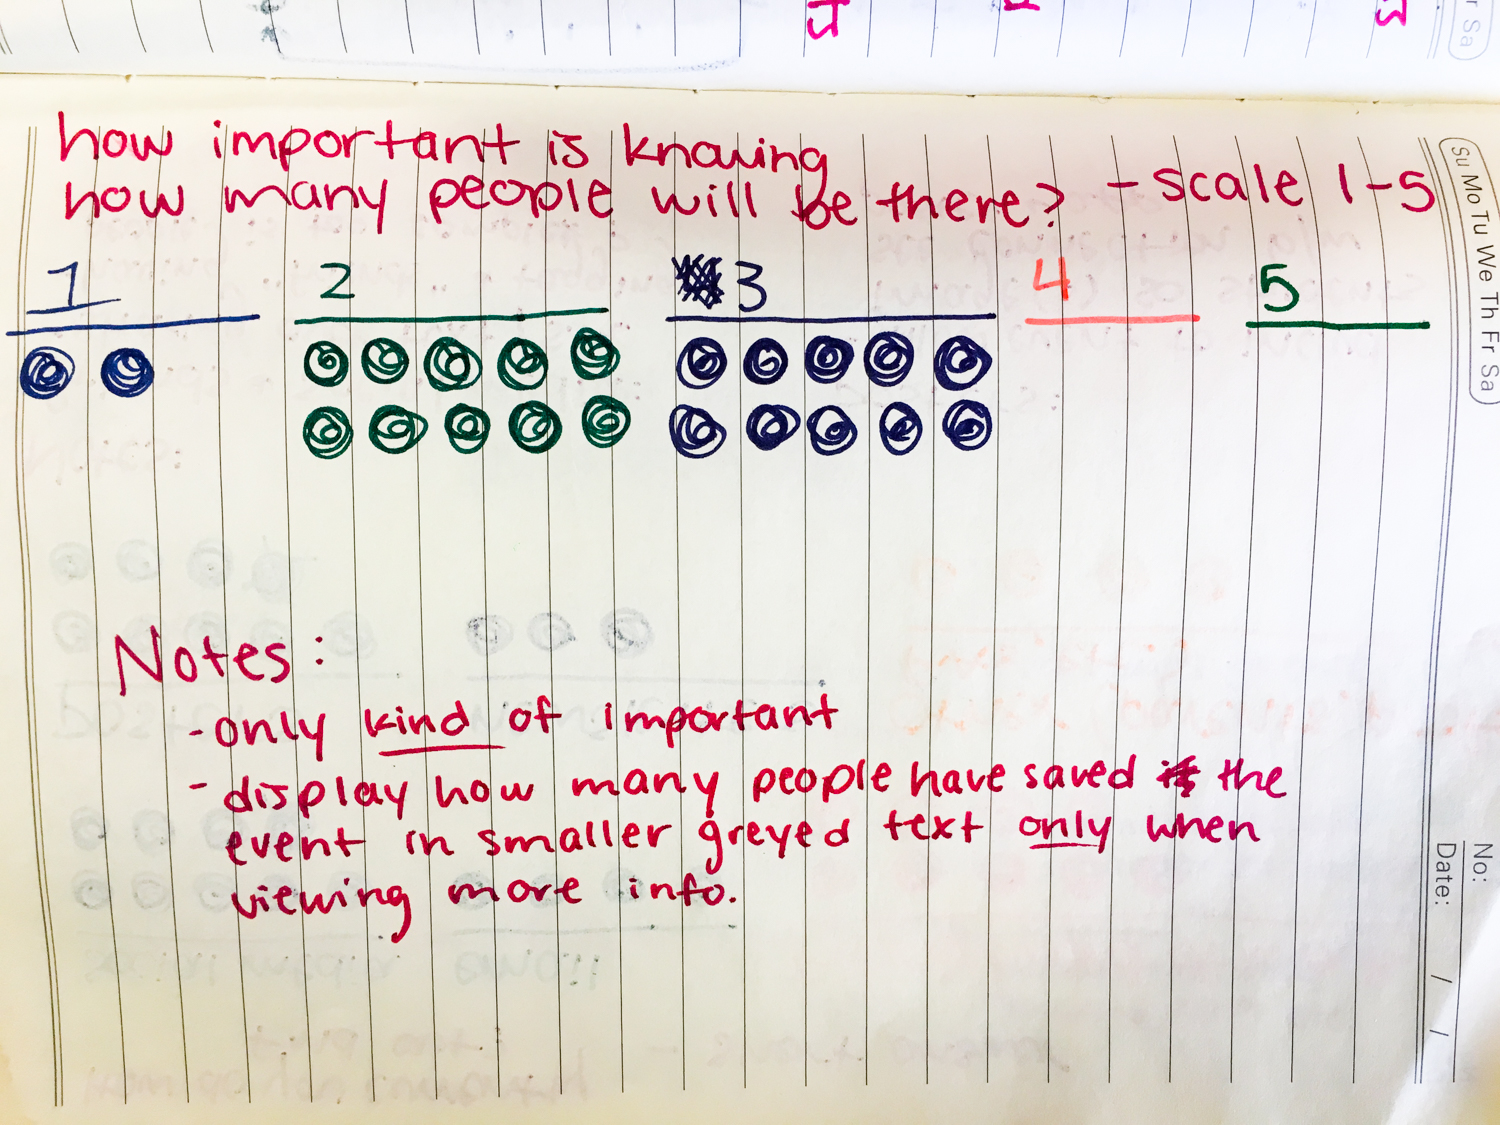 how important is knowing
how many people will be there? - scale 1-5
1 2 3 4 5
Notes:
- only kind of important
- display how many people have saved the
event in smaller greyed text only when
viewing more info.
Su Mo Tu We Th Fr Sa
No:
Date: / /
r Sa